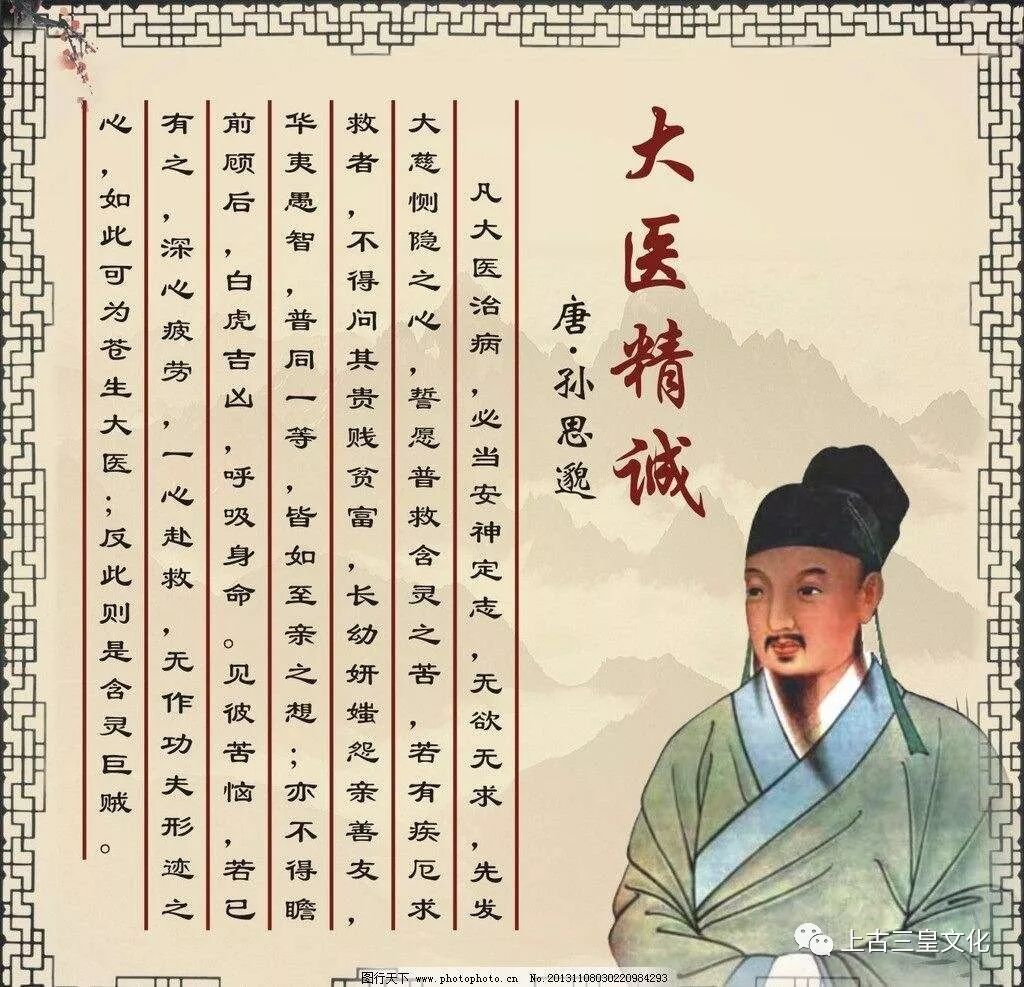 大医精诚
唐·孙思邈
凡大医治病，必当安神定志，无欲无求，先发
大慈恻隐之心，誓愿普救含灵之苦，若有疾厄求
救者，不得问其贵贱贫富，长幼妍媸怨亲善友，
华夷愚智，普同一等，皆如至亲之想；亦不得瞻
前顾后，白虎吉凶，呼吸身命。见彼苦恼，若己
有之，深心疲劳，一心赴救，无作功夫形迹之
心，如此可为苍生大医；反此则是含灵巨贼。
上古三皇文化
图行天下 www.photophoto.cn No.20131108030220984293